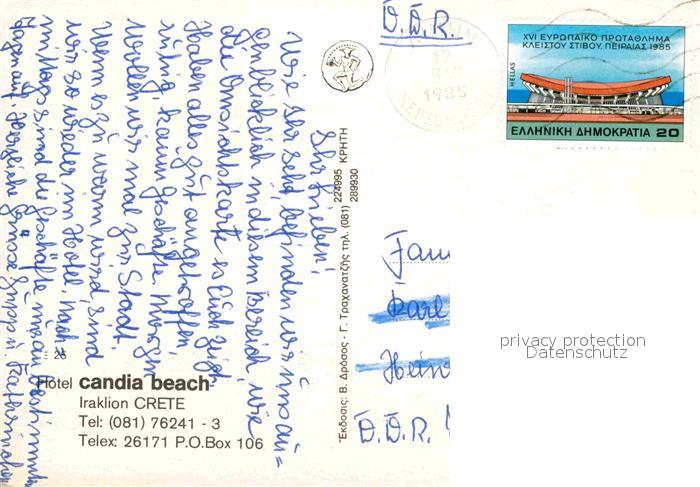 Ihr Lieben!
Wie Ihr seht, befinden wir uns au=
genblicklich in diesem Bereich, wie
die Ansichtskarte es Euch zeigt.
Haben alles gut angetroffen,
ruhig, kaum Geschäfte. Morgen
wollen wir mal zur Stadt.
Wenn es zu warm wird, sind
wir so wieder im Hotel. Nach
sind die Geschäfte
Herzliche Grüsse
... 26
Hotel candia beach
Iraklion CRETE
Tel: (081) 76241 - 3
Telex: 26171 P.O.Box 106
Έκδοσις: Β. Δρόσος - Γ. Τραχανατζής τηλ. (081) 224995 289930 ΚΡΗΤΗ
D.D.R.
1985
XVI ΕΥΡΩΠΑΪΚΟ ΠΡΩΤΑΘΛΗΜΑ
ΚΛΕΙΣΤΟΥ ΣΤΙΒΟΥ. ΠΕΙΡΑΙΑΣ 1985
HELLAS
ΕΛΛΗΝΙΚΗ ΔΗΜΟΚΡΑΤΙΑ 20
Fam
Karl
Hein
D.D.R.
privacy protection
Datenschutz